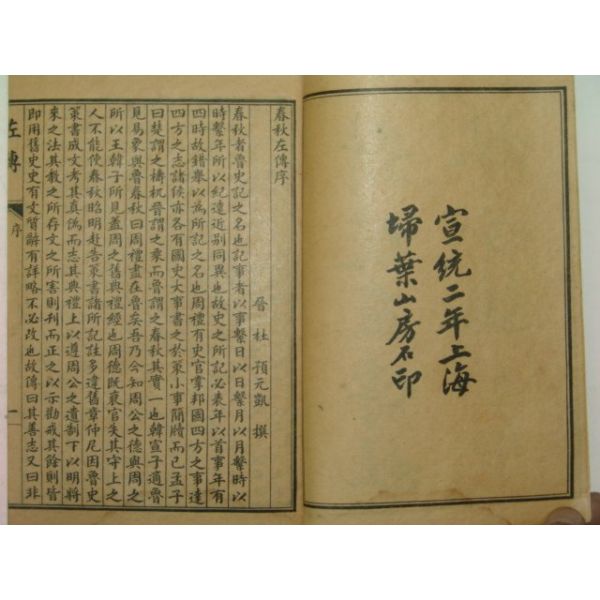 宣統二年上海
埽葉山房石印
春秋左傳序
晉 杜 預元凱 撰
春秋者魯史記之名也記事者以事繫日以日繫月以月繫時以
時繫年所以紀遠近別同異也故史之所記必表年以首事年有
四時故錯舉以為所記之名也周禮有史官掌邦國四方之事達
四方之志諸侯亦各有國史大事書之於策小事簡牘而已孟子
曰楚謂之檮杌晉謂之乘而魯謂之春秋其實一也韓宣子適魯
見易象與魯春秋曰周禮盡在魯矣吾乃今知周公之德與周之
所以王韓子所見蓋周之舊典禮經也周德既衰官失其守上之
人不能使春秋昭明赴告策書諸所記註多違舊章仲尼因魯史
策書成文考其真偽而志其典禮上以遵周公之遺制下以明將
來之法其教之所存文之所害則刊而正之以示勸戒其餘則皆
即用舊史史有文質辭有詳略不必改也故傳曰其善志又曰非
左傳 序 一